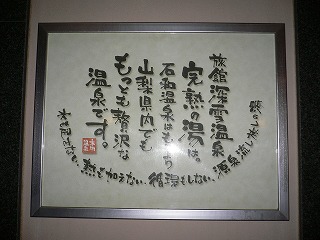 旅館深雪温泉
完熟の湯は、
石和温泉はもちろん
山梨県内でも
もっとも贅沢な
温泉です。
源泉流し
水を加えない、熱を加えない、循環もしない、